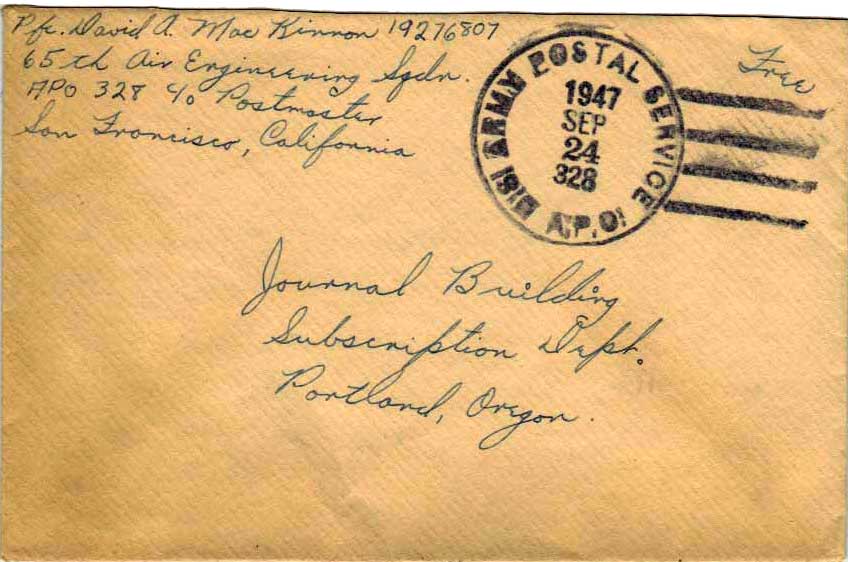 Pfc. David A. Mac Kinnon 19276807
65th Air Engineering Sqdn.
APO 328 c/o Postmaster
San Francisco, California
Free
U.S. ARMY POSTAL SERVICE A.P.O.
1947
SEP
24
328
Journal Building
Subscription Dept.
Portland, Oregon.